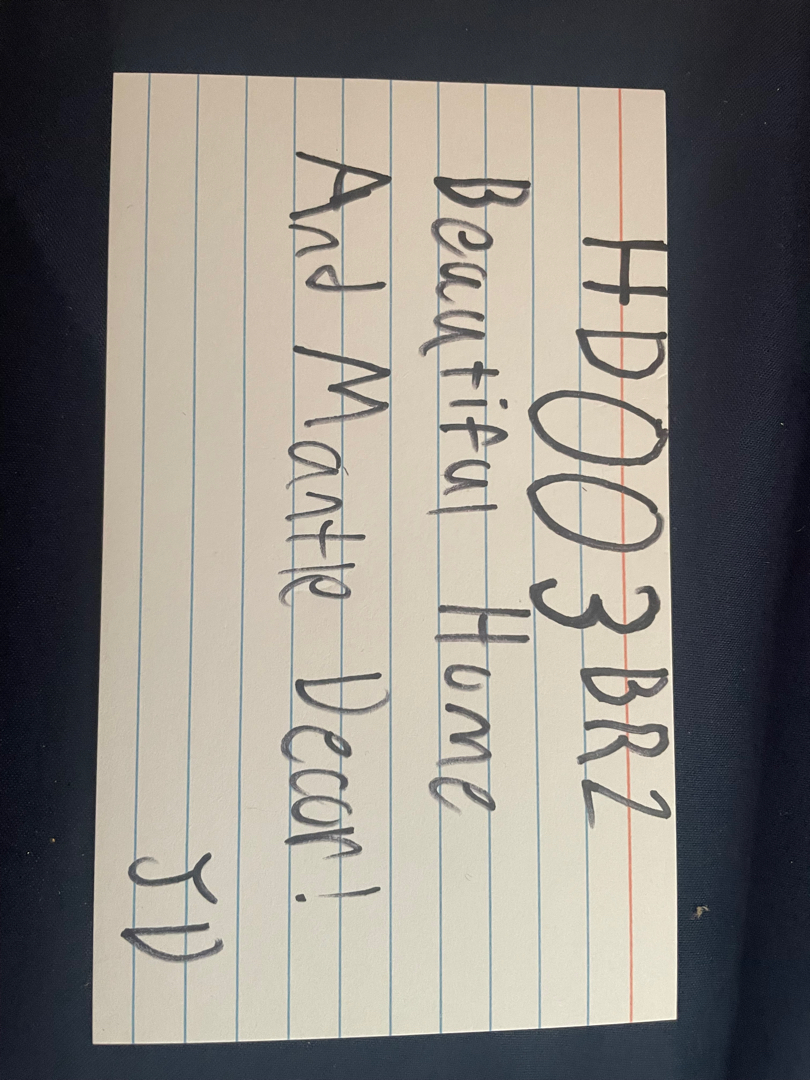 HD003BRZ
Beautiful Home
And Mantle Decor!
JD